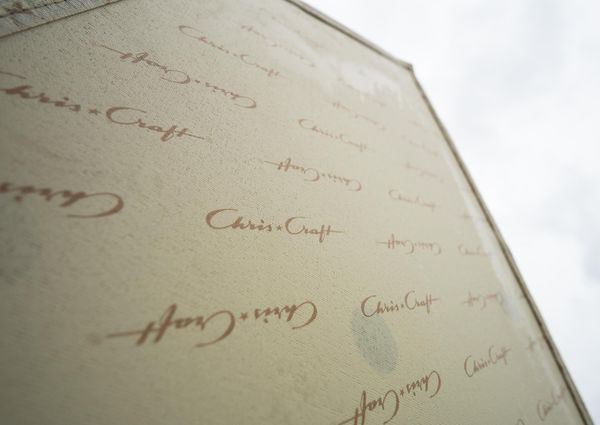 Chris★Craft
Chris★Craft
Chris★Craft
Chris★Craft
Chris★Craft
Chris★Craft
Chris★Craft
Chris★Craft
Chris★Craft
Chris★Craft
Chris★Craft
Chris★Craft
Chris★Craft